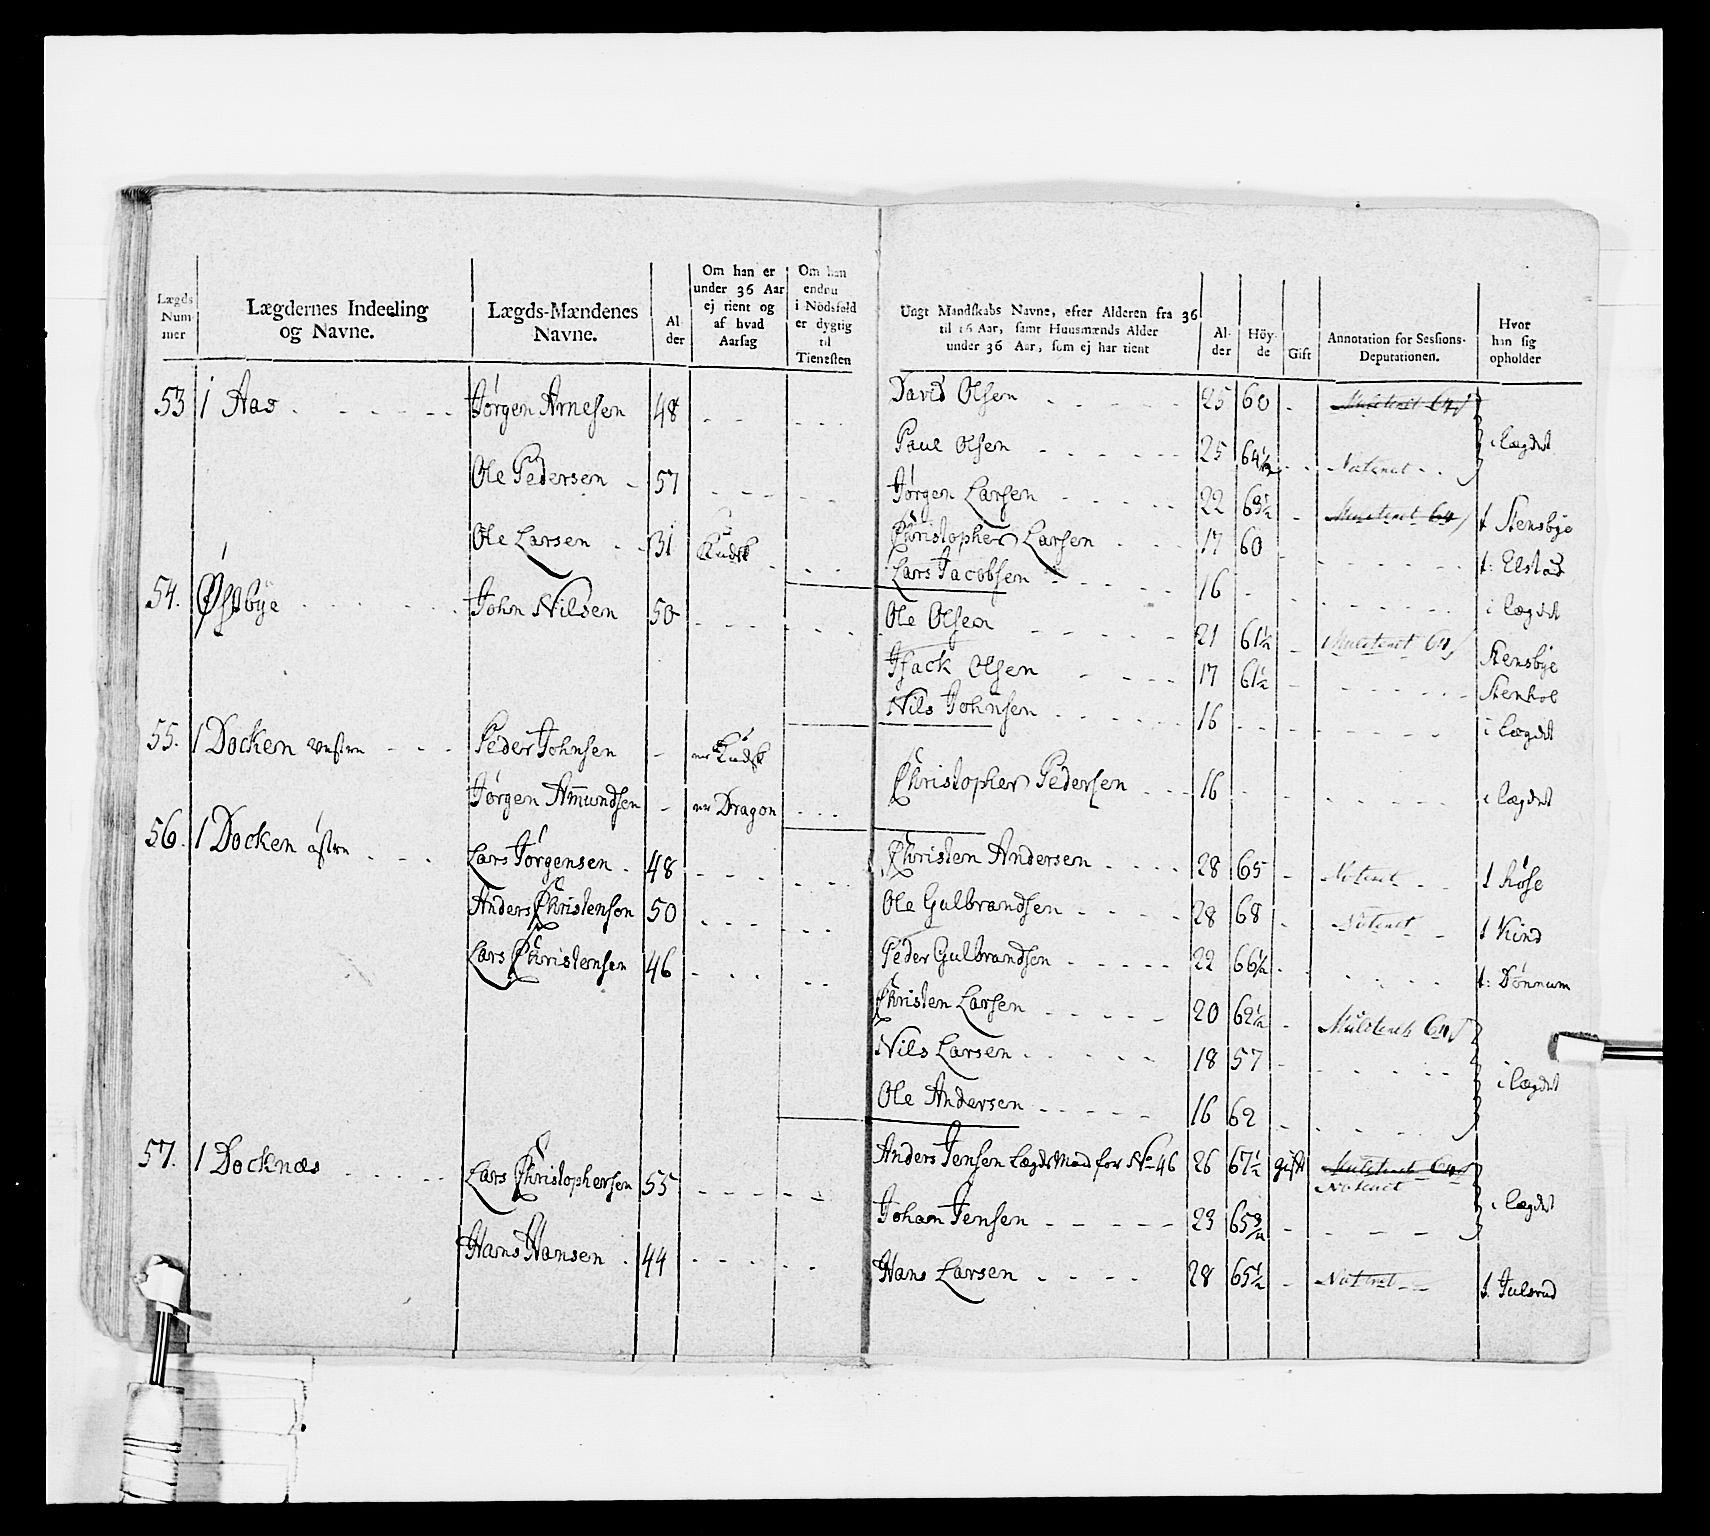 Lægds Nummer
Lægdernes Indeeling og Navne.
Lægds-Mændenes Navne.
Alder
Om han er under 36 Aar ej tient og af hvad Aarsag
Om han endnu i Nödsfald er dygtig til Tienesten
Ungt Mandskabs Navne, efter Alderen fra 36 til 16 Aar, samt Huusmænds Alder under 36 Aar, som ej har tient
Alder
Höyde
Gift
Annotation for Sessions-Deputationen.
Hvor han sig opholder
53 1 Aas Jørgen Arnesen 48
Ole Pedersen 57
Ole Larsen 31 Kudsk
54. Østbye John Nilsen 50
55. 1 Docken Peder Johnsen - er Kudsk
Jørgen Amundsen - er Dragon
56. 1 Docken Lars Jørgensen 48
Anders Christensen 50
Lars Christensen 46
57. 1 Docknæs Lars Christophersen 55
Hans Hansen 44
David Olsen 25 60
Paul Olsen 25 64½ Noteret i lægdet
Jørgen Larsen 22 63½ t Stensbye
Christopher Larsen 17 60 t: Elstad
Lars Jacobsen 16 i lægdet
Ole Olsen 21 61½ Stensbye
Isack Olsen 17 61½ Stenhol
Nils Johnsen 16 i lægdet
Christopher Pedersen 16 i lægdet
Christen Andersen 28 65 Noteret t Røse
Ole Gulbrandsen 28 68 Noteret t Kind
Peder Gulbrandsen 22 66½ t: Dönnum
Christen Larsen 20 62½
Nils Larsen 18 57 i lægdet
Ole Andersen 16 62
Anders Jensen LægdsMand for No 46 26 67½ gift Noteret
Johan Jensen 23 65¾ i lægdet
Hans Larsen 28 65½ Noteret t. Julsrud